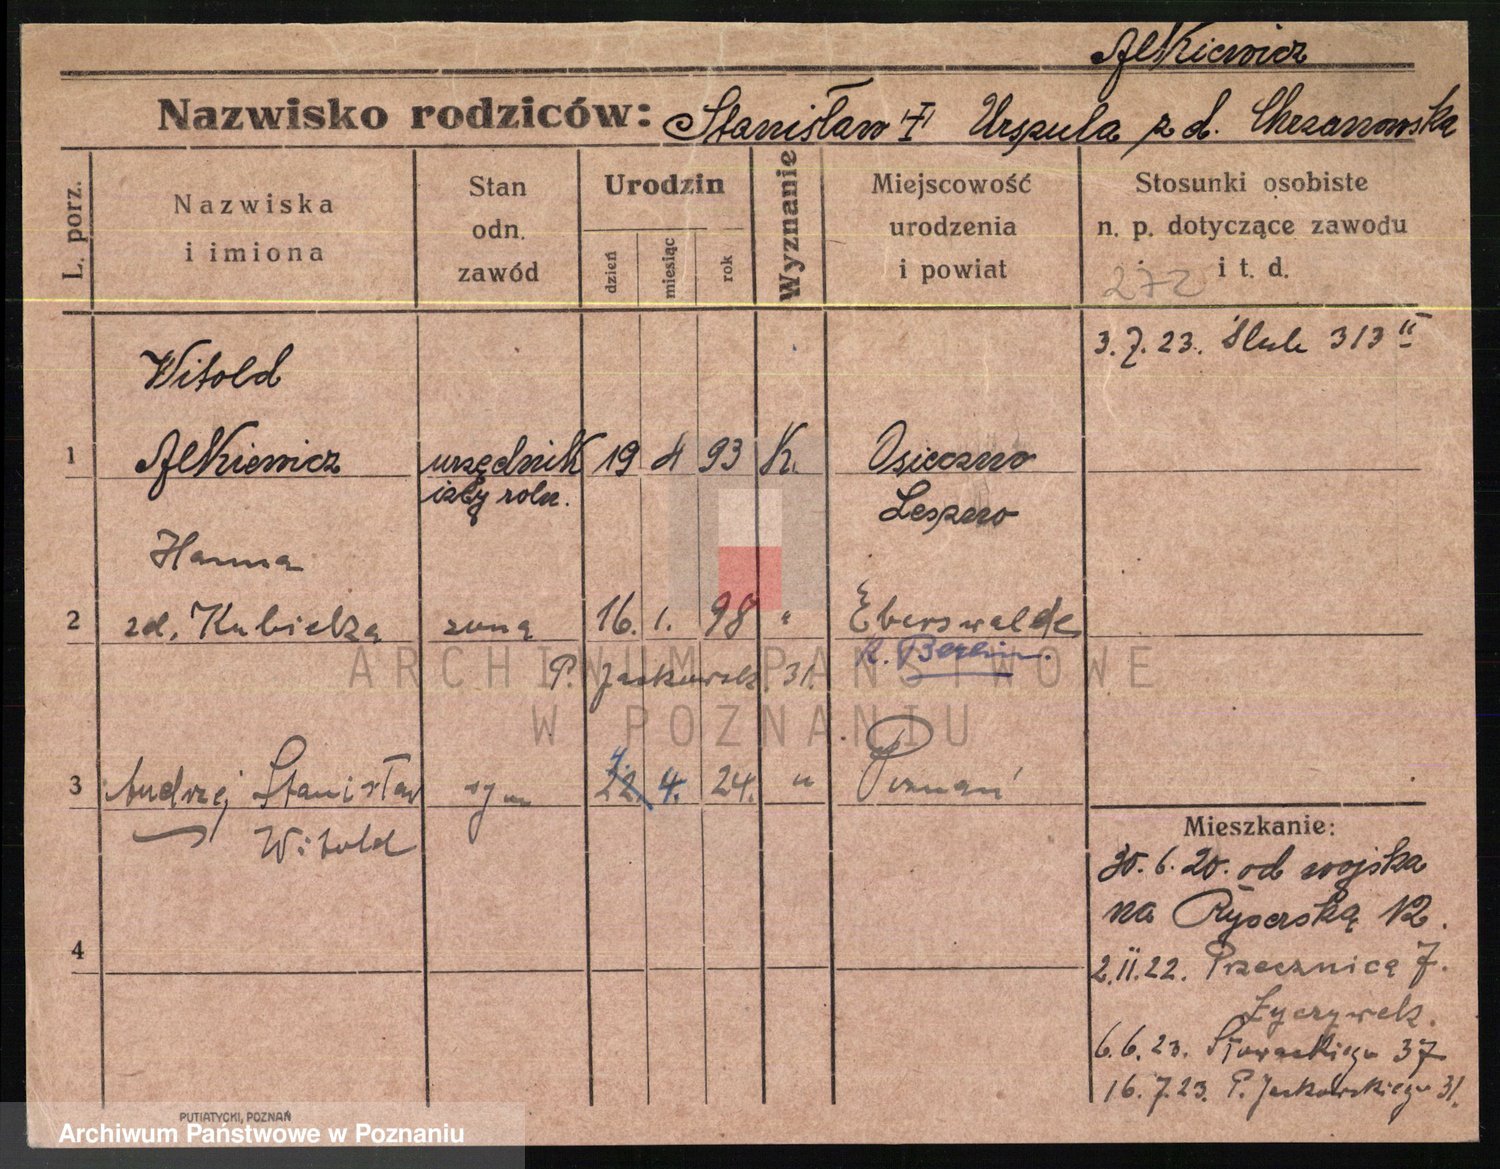 Alkiewicz
Nazwisko rodziców: Stanisław Urszula z d. Chrzanowska
L. porz.
Nazwiska
i imiona
Stan
odn.
zawód
Urodzin
dzień
miesiąc
rok
Wyznanie
Miejscowość
urodzenia
i powiat
Stosunki osobiste
n. p. dotyczące zawodu
i t. d.
272
3.7.23. Ślub 313 II
Witold
1 Alkiewicz urzędnik 19 4 93 K. Osieczno
izby roln. Leszno
Hanna
2 zd. Kubicka żona 16. 1. 98 " Eberswalde
k. Berlin.
P. Jackowsk 31.
3 Andrzej Stanisław syn 22. 4. 24. " Poznań
Witold
4
Mieszkanie:
30.6.20. od wojska
na Rycerską 12.
2.II.22. Przecznica 7.
6.6.23. Słowackiego 37
16.7.23. P. Jackowskiego 31.
ARCHIWUM PAŃSTWOWE
W POZNANIU
PUTIATYCKI, POZNAŃ
Archiwum Państwowe w Poznaniu